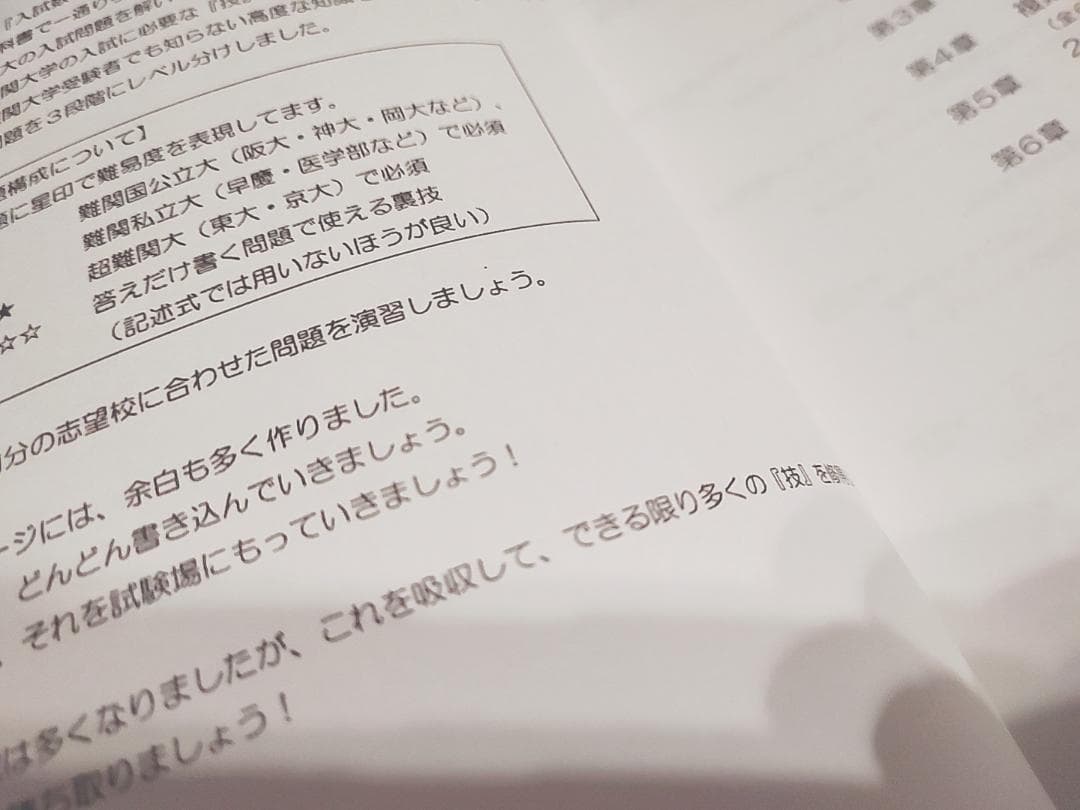 『入試数
科書で一通り
大の入試問題を解い
関大学の入試に必要な『技
関大学受験者でも知らない高度な知識
問題を3段階にレベル分けしました。
構成について】
題に星印で難易度を表現してます。
難関国公立大（阪大・神大・岡大など）、
難関私立大（早慶・医学部など）で必須
超難関大（東大・京大）で必須
★
答えだけ書く問題で使える裏技
☆☆
（記述式では用いないほうが良い）
分の志望校に合わせた問題を演習しましょう。
ージには、余白も多く作りました。
どんどん書き込んでいきましょう。
、それを試験場にもっていきましょう！
は多くなりましたが、これを吸収して、できる限り多くの『技』を
ち取りましょう！
第3章
第4章
第5章
第6章